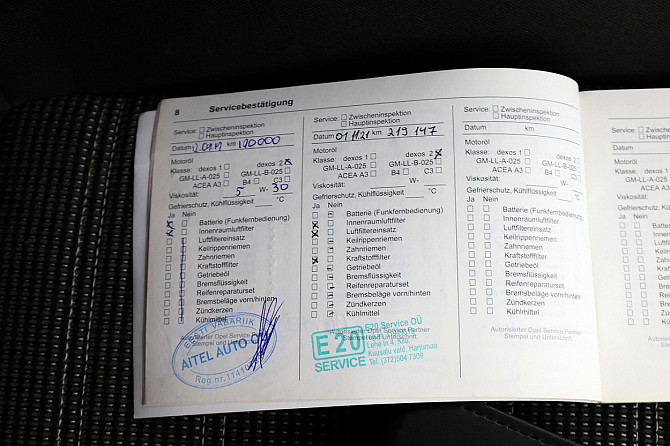 8 Servicebestätigung
Service: Zwischeninspektion
Hauptinspektion
Datum km 190000
Motoröl
Klasse: dexos 1 dexos 2 x
GM-LL-A-025 GM-LL-B-025
ACEA A3 B4 C3
Viskosität: 5 W- 30
Gefrierschutz, Kühlflüssigkeit °C
Ja Nein
Batterie (Funkfernbedienung)
Innenraumluftfilter
Luftfiltereinsatz
Keilrippenriemen
Zahnriemen
Kraftstofffilter
Getriebeöl
Bremsflüssigkeit
Reifenreparaturset
Bremsbeläge vorn/hinten
Zündkerzen
Kühlmittel
Autorisierter Opel Service
Stempel und
EESTI VABARIIK
AITEL AUTO OÜ
Reg.nr.11410
Service: Zwischeninspektion
Hauptinspektion
Datum 01.11.21 km 219 147
Motoröl
Klasse: dexos 1 dexos 2 x
GM-LL-A-025 GM-LL-B-025
ACEA A3 B4 C3
Viskosität: W-
Gefrierschutz, Kühlflüssigkeit °C
Ja Nein
Batterie (Funkfernbedienung)
Innenraumluftfilter
Luftfiltereinsatz
Keilrippenriemen
Zahnriemen
Kraftstofffilter
Getriebeöl
Bremsflüssigkeit
Reifenreparaturset
Bremsbeläge vorn/hinten
Zündkerzen
Kühlmittel
Autorisierter Opel Service Partner
Stempel und Unterschrift
E20
SERVICE
E20 Service OÜ
Kuusalu vald, Harjumaa
Tel. (372)504 7309
Service: Zwischeninspektion
Hauptinspektion
Datum km
Motoröl
Klasse: dexos 1 dexos 2
GM-LL-A-025 GM-LL-B-025
ACEA A3 B4 C3
Viskosität: W-
Gefrierschutz, Kühlflüssigkeit °C
Ja Nein
Batterie (Funkfernbedienung)
Innenraumluftfilter
Luftfiltereinsatz
Keilrippenriemen
Zahnriemen
Kraftstofffilter
Getriebeöl
Bremsflüssigkeit
Reifenreparaturset
Bremsbeläge vorn/hinten
Zündkerzen
Kühlmittel
Autorisierter Opel Service Partner
Stempel und Unterschrift
Service:
Datum
Motoröl
Klasse: dexos
GM-LL-A-025
ACEA A3
Viskosität:
Gefrierschutz, Kühlflüssigkeit
Ja Nein